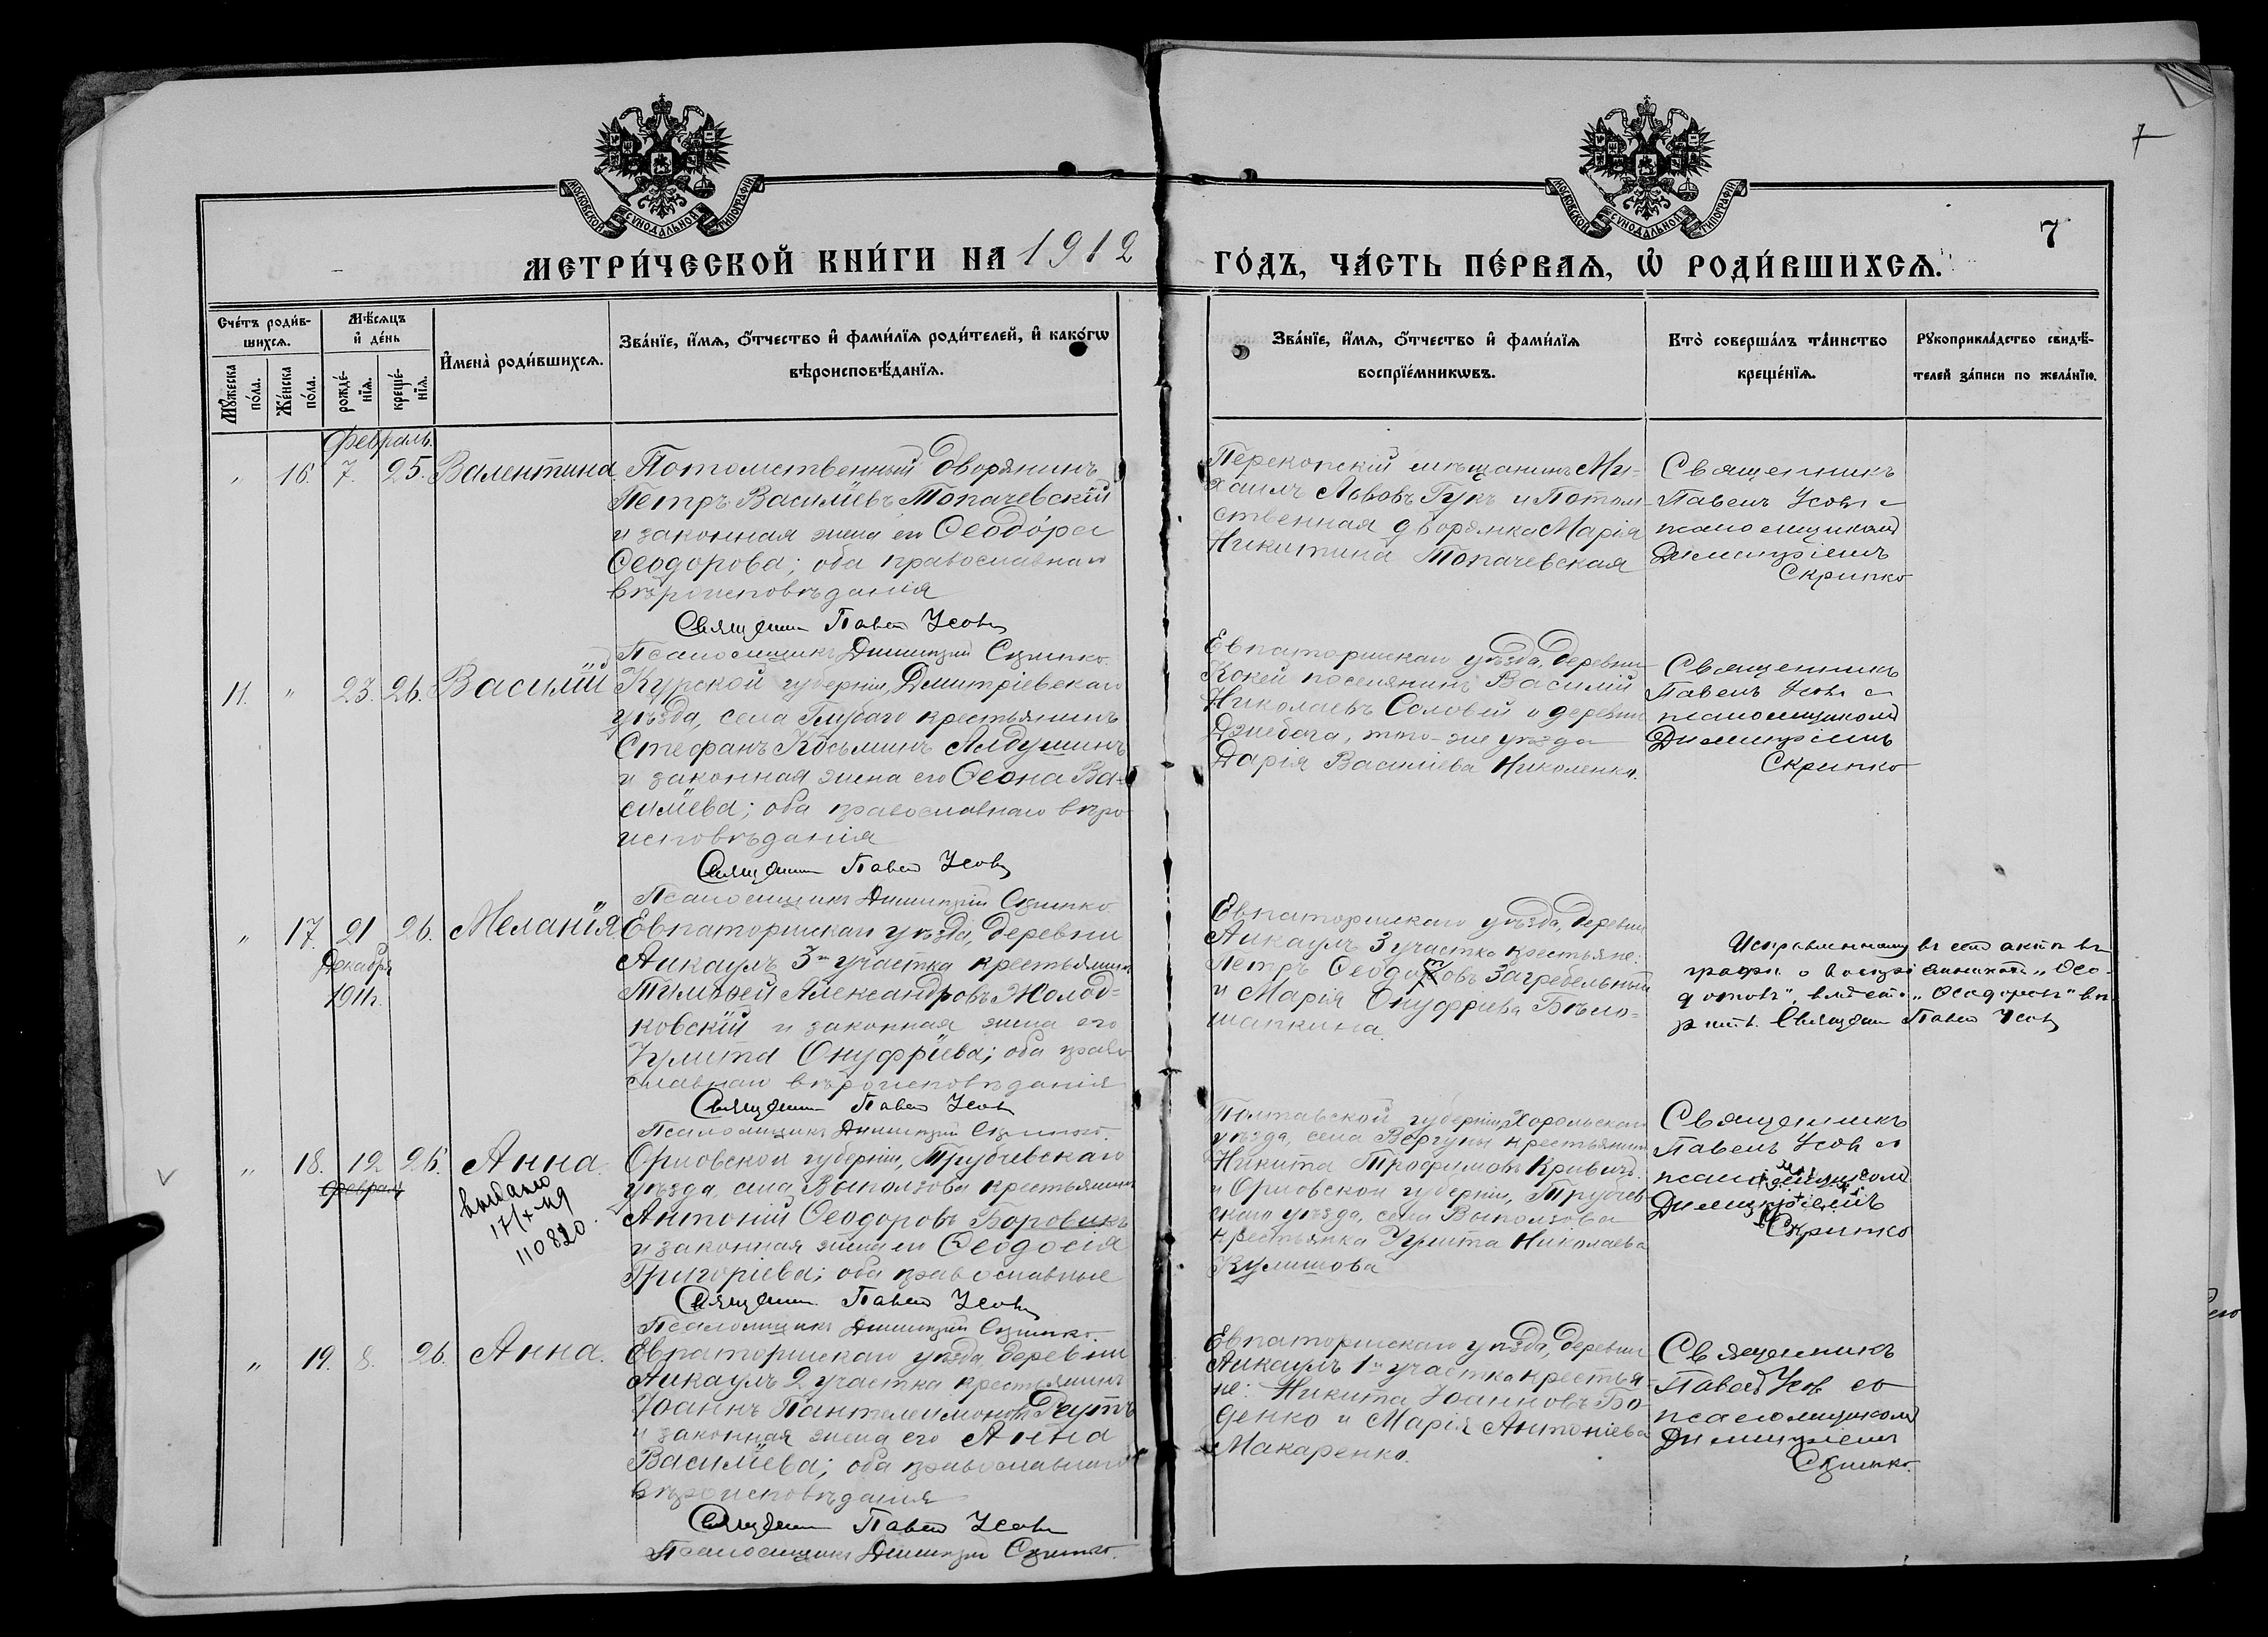 МОСКОВСКОЙ СѴНОДАЛЬНОЙ ТИПОГРАФІИ
МОСКОВСКОЙ СѴНОДАЛЬНОЙ ТИПОГРАФІИ
7
7
МЕТРИ́ЧЕСКОЙ КНИ́ГИ НА 1912
ГО́ДЪ, ЧА́СТЬ ПЕ́РВАѦ, Ѡ҆ РОДИ́ВШИХСѦ.
Сче́тъ роди́в-
шихсѧ.
Мꙋ́жеска
по́ла.
Же́нска
по́ла.
Мѣ́сѧцъ
и҆ де́нь
рожде́-
нїѧ.
креще́-
нїѧ.
И҆мена̀ роди́вшихсѧ.
Зва́нїе, и҆́мѧ, ѻ҆́тчество и҆ фами́лїѧ роди́телей, и҆ како́гѡ
вѣроисповѣ́данїѧ.
Зва́нїе, и҆́мѧ, ѻ҆́тчество и҆ фами́лїѧ
воспрїе́мникѡвъ.
Кто̀ соверша́лъ та́инство
креще́нїѧ.
Рꙋкоприкла́дство свидѣ́-
телей за́писи по жела́нїю.
Февраль.
" 16. 7. 25. Валентина
Потомственный дворянинъ
Петръ Васильевъ Топачевскій
и законная жена его Ѳеодора
Ѳеодорова; оба православнаго
вѣроисповѣданія
Священник Павел Усовъ
Псаломщикъ Димитрій Скрипко.
Перекопскій мѣщанинъ Ми-
хаилъ Львовъ Гукъ и Потом-
ственная дворянка Марія
Никитина Топачевская
Священникъ
Павелъ Усовъ с
псаломщикомъ
Димитріемъ
Скрипко
11. " 23. 26. Василій
Курской губерніи, Дмитріевскаго
уѣзда, села Глубаго крестьянинъ
Стефанъ Косьминъ Алдушинъ
и законная жена его Ѳеона Ва-
сильева; оба православнаго вѣро-
исповѣданія
Священник Павел Усовъ
Псаломщикъ Димитрій Скрипко
Евпаторійскаго уѣзда, деревни
Кокей поселянинъ Василій
Николаевъ Соловей и деревни
того-же уѣзда
Дарія Василіева Николенко.
Священникъ
Павелъ Усовъ с
псаломщикомъ
Димитріемъ
Скрипко
" 17. 21 26. Меланія
Декабря
1911г.
Евпаторійскаго уѣзда, деревни
Аикаулъ 3го участка крестьянинъ
Тимоѳей Александровъ Жолод-
ковскій и законная жена его
Улита Онуфріева; оба право-
славнаго вѣроисповѣданія
Священник Павел Усовъ
Псаломщикъ Димитрій Скрипко.
Евпаторійскаго уѣзда, деревни
Аикаулъ 3 участка крестьяне:
Петръ Ѳеодотовъ Загребельный
и Марія Онуфріева Бѣло-
шапкина.
Исправленному въ сем актѣ въ
графѣ о воспріемникахъ "Ѳео-
дотовъ", вмѣсто "Ѳеодоровъ" вѣ-
рить. Священник Павел Усовъ
" 18. 12. 26. Анна.
Февраль
выдано
17/X-49
110820.
Орловской губерніи, Трубчевскаго
уѣзда, села Выползова крестьянинъ
Антоній Ѳеодоровъ Боровикъ
и законная жена его Ѳеодосія
Григоріева; оба православные
Священник Павел Усовъ
Псаломщикъ Димитрій Скрипко.
Полтавской губерніи, Хорольскаго
уѣзда, села Вергуны крестьянинъ
Никита Трофимовъ Кривичъ
и Орловской губерніи, Трубчев-
скаго уѣзда, села Выползова
крестьянка Улита Николаева
Кулишова
Священникъ
Павелъ Усовъ с
псаломщикомъ
Димитріемъ
Скрипко
" 19. 8. 26. Анна.
Евпаторійскаго уѣзда, деревни
Аикаулъ 2 участка крестьянинъ
Іоаннъ Пантелеимоновъ Реутъ
и законная жена его Анна
Васильева; оба православнаго
вѣроисповѣданія
Священник Павел Усовъ
Псаломщикъ Димитрій Скрипко.
Евпаторійскаго уѣзда, деревни
Аикаулъ 1го участка крестья-
не: Никита Іоанновъ Бо-
денко и Марія Антоніева
Макаренко.
Священникъ
Павелъ Усовъ со
псаломщикомъ
Димитріемъ
Скрипко.